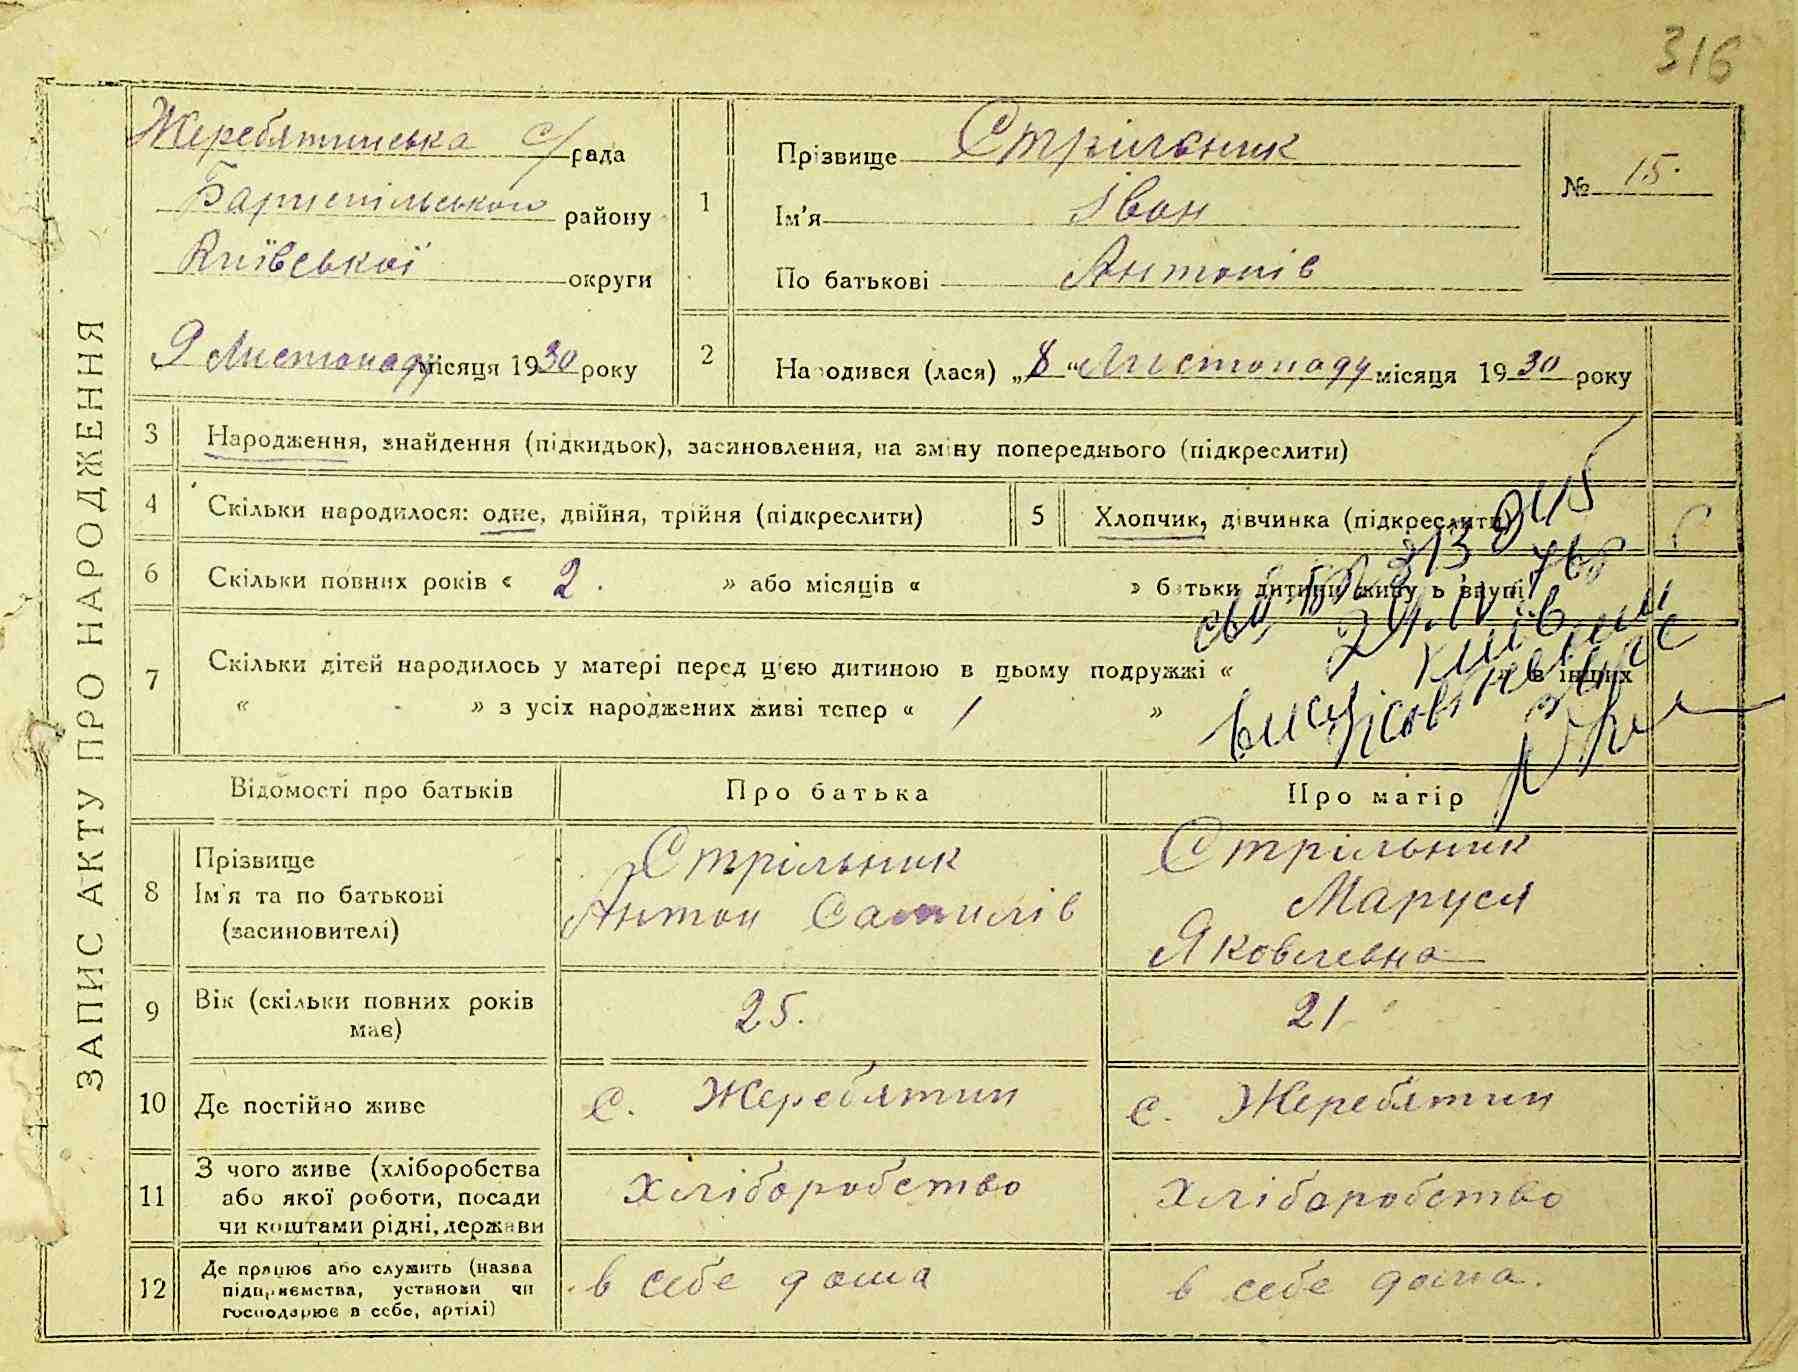 316
ЗАПИС АКТУ ПРО НАРОДЖЕННЯ
Жеребятинська с/рада
Бариспільського району
Київської округи
9 Листопаду місяця 1930 року
1
Прізвище Стрільник
Ім'я Іван
По батькові Антонів
№ 15.
2
Народився (лася) „8“ Листопаду місяця 1930 року
3 Народження, знайдення (підкидьок), засиновлення, на зміну попереднього (підкреслити)
4 Скільки народилося: одне, двійня, трійня (підкреслити)
5 Хлопчик, дівчинка (підкреслити)
6 Скільки повних років « 2. » або місяців « » батьки дитини живуть вкупі
7 Скільки дітей народилось у матері перед цією дитиною в цьому подружжі « » в інших
« - » з усіх народжених живі тепер « 1 »
Відомості про батьків
Про батька
Про матір
8 Прізвище
Ім'я та по батькові
(засиновителі)
Стрільник
Антон Самилів
Стрільник
Маруся
Яковлевна
9 Вік (скільки повних років
має)
25.
21
10 Де постійно живе
с. Жеребятин
с. Жеребятин
11 З чого живе (хліборобства
або якої роботи, посади
чи коштами рідні, держави
Хліборобство
Хліборобство
12 Де працює або служить (назва
підприємства, установи чи
господарює в себе, артілі)
в себе дома
в себе дома.